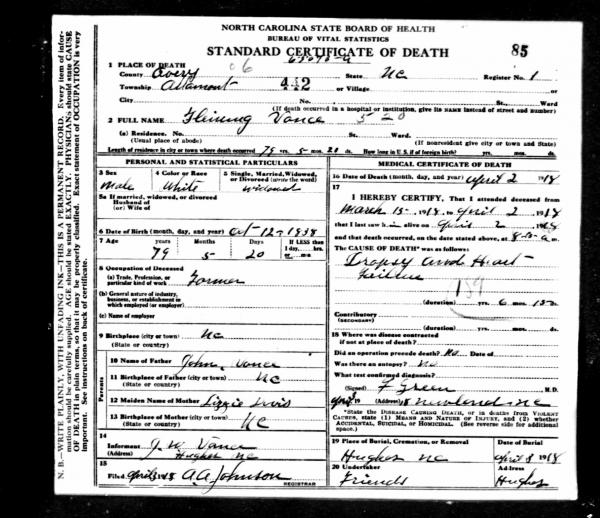 NORTH CAROLINA STATE BOARD OF HEALTH
BUREAU OF VITAL STATISTICS
STANDARD CERTIFICATE OF DEATH 85
1 PLACE OF DEATH
County Avery 06 State NC Register No. 1
Township Altamont 442 or Village
City No. St., Ward
(If death occurred in a hospital or institution, give its NAME instead of street and number)
2 FULL NAME Fleming Vance 520
(a) Residence. No. St. Ward.
(Usual place of abode) (If nonresident give city or town and State)
Length of residence in city or town where death occurred 79 yrs. 5 mos. 20 ds. How long in U.S. if of foreign birth? yrs. mos. ds.
PERSONAL AND STATISTICAL PARTICULARS
3 Sex 4 Color or Race 5 Single, Married, Widowed, or Divorced (write the word)
Male White widowed
5a If married, widowed, or divorced
Husband of
(or) Wife of
6 Date of Birth (month, day, and year) Oct-12-1838
7 Age years Months Days If LESS than 1 day, hrs. or min.
79 5 20
8 Occupation of Deceased
(a) Trade, Profession, or particular kind of work Farmer
(b) General nature of industry, business, or establishment in which employed (or employer)
(c) Name of employer
9 Birthplace (city or town) NC
(State or country)
Parents
10 Name of Father John Vance
11 Birthplace of Father (city or town) NC
(State or country)
12 Maiden Name of Mother Lizzie
13 Birthplace of Mother (city or town) NC
(State or country)
14
Informant J. W. Vance
(Address) Hughes NC
15
Filed April 3 1918 A.A. Johnson
REGISTRAR
MEDICAL CERTIFICATE OF DEATH
16 Date of Death (month, day, and year) April 2 1918
17
I HEREBY CERTIFY, That I attended deceased from
March 15- 1918, to April 2 1918
that I last saw h alive on April 2 1918
and that death occurred, on the date stated above, at 8-15-a m.
The CAUSE OF DEATH* was as follows:
Dropsy and Heart
Failure
159
(duration) yrs. 6 mos. ds.
Contributory
(SECONDARY)
(duration) yrs. mos. ds.
18 Where was disease contracted
if not at place of death?
Did an operation precede death? No Date of
Was there an autopsy? No
What test confirmed diagnosis?
(Signed) F Green M.D.
19 (Address) Newland NC
*State the DISEASE CAUSING DEATH, or in deaths from VIOLENT CAUSES, state (1) MEANS AND NATURE OF INJURY, and (2) whether ACCIDENTAL, SUICIDAL, or HOMICIDAL. (See reverse side for additional space.)
19 Place of Burial, Cremation, or Removal Date of Burial
Hughes NC April 3 1918
20 Undertaker Address
Friends Hughes
N. B.—WRITE PLAINLY, WITH UNFADING INK—THIS IS A PERMANENT RECORD. Every item of information should be carefully supplied. AGE should be stated EXACTLY. PHYSICIANS should state CAUSE OF DEATH in plain terms, so that it may be properly classified. Exact statement of OCCUPATION is very important. See instructions on back of certificate.